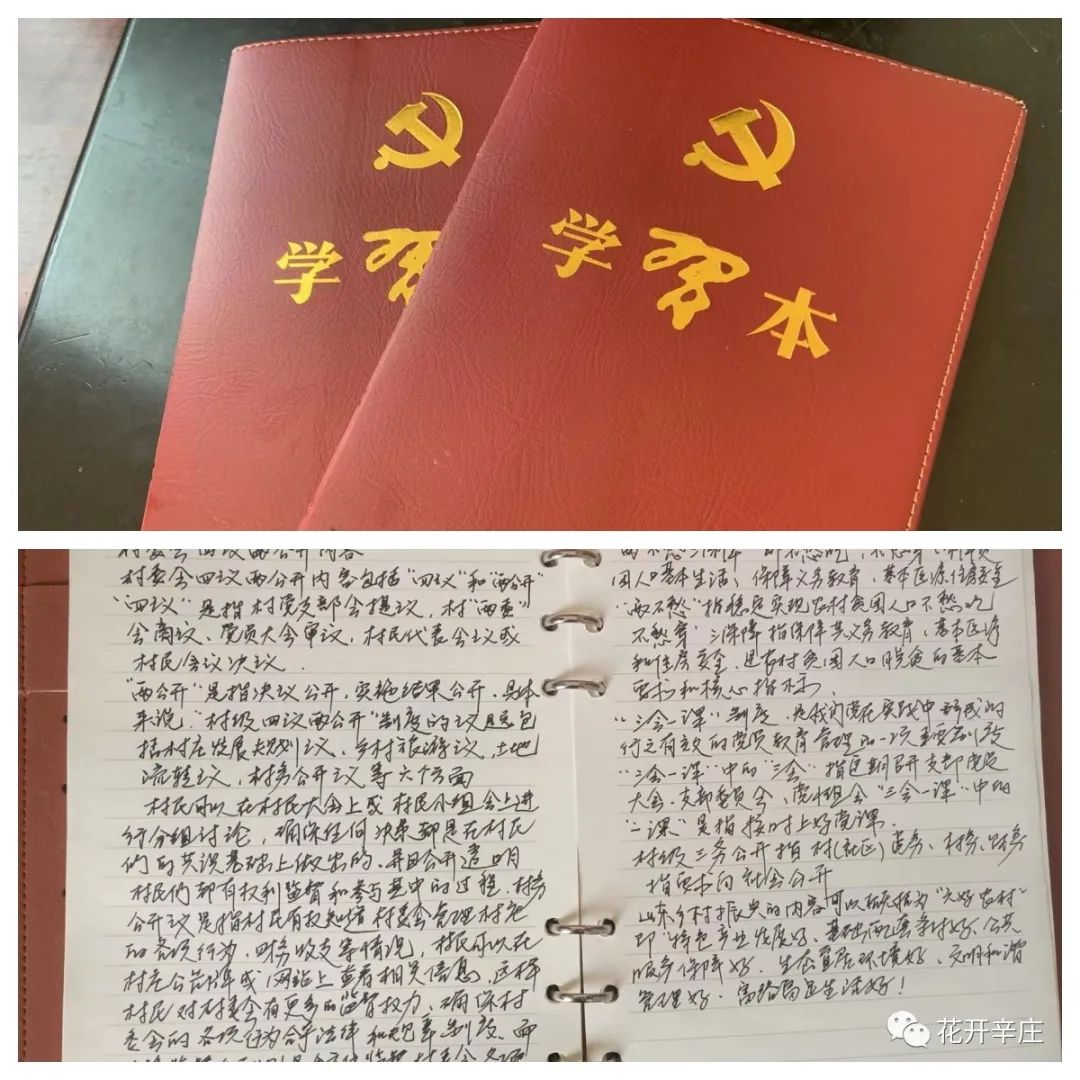 学习
学习本
村委会四议两公开内容
村委会四议两公开内容包括"四议"和"两公开"
"四议"是指村党支部会提议，村"两委"
会商议、党员大会审议，村民代表会议或
村民会议决议．
"两公开"是指决议公开，实施结果公开．具体
来说："村级四议两公开"制度的议题包
括村庄发展规划议、乡村旅游议，土地
流转议，村务公开议等六个方面
村民可以在村民大会上或村民小组会上进
行分组讨论，确保任何决策都是在村民
们的共识基础上做出的．并且公开透明
村民们都有权利监督和参与其中的过程．村务
公开议是指村民有权知道村委会管理村庄
的各项行为．财务收支等情况，村民可以在
村庄公告牌或网站上查看相关信息．这样
村民对村委会有更多的监督权力、确保村
委会的各项行为合乎法律和规章制度．而
两不愁三保障 即不愁吃，不愁穿
困人口基本生活、保障义务教育、基本医疗住房安全
"两不愁"指稳定实现农村贫困人口不愁吃
不愁穿"三保障"指保障其义务教育、基本医疗
和住房安全，是农村贫困人口脱贫的基本
要求和核心指标．
"三会一课"制度，是我们党在实践中形成的
行之有效的党员教育管理的一项重要制度
"三会一课"中的"三会"指定期召开支部党员
大会．支部委员会、党小组会"三会一课"中的
"一课"是指按时上好党课．
村级三务公开指村(社区)党务、村务、财务
指要求向社会公开
山东乡村振兴的内容可以概括为"六好农村"
即"特色产业发展好、基础配套条件好、公共
服务保障好．生态宜居环境好、文明和谐
管理好．富裕富足生活好！
花开辛庄